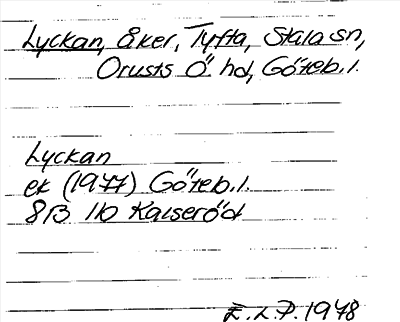 Lyckan, åker, Tyfta, Stala sn,
Orusts Ö hd, Göteb. l.
Lyckan
ek (1977) Göteb. l.
8B 1b Kalseröd
E.L.P. 1978